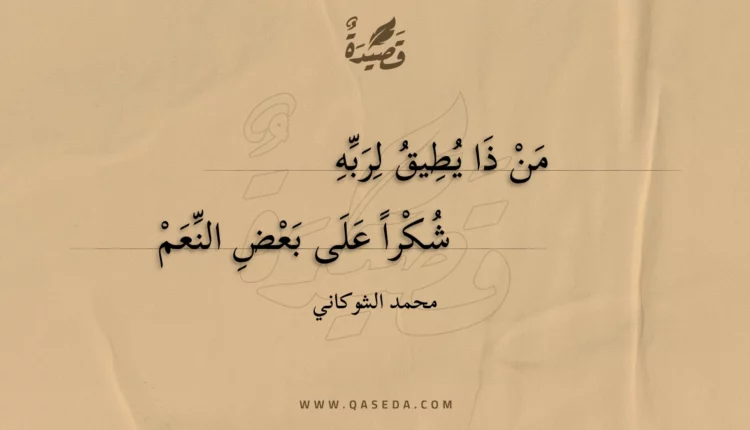 قَصِيدَةٌ
مَنْ ذَا يُطِيقُ لِرَبِّهِ
شُكْراً عَلَى بَعْضِ النِّعَمْ
محمد الشوكاني
WWW.QASEDA.COM